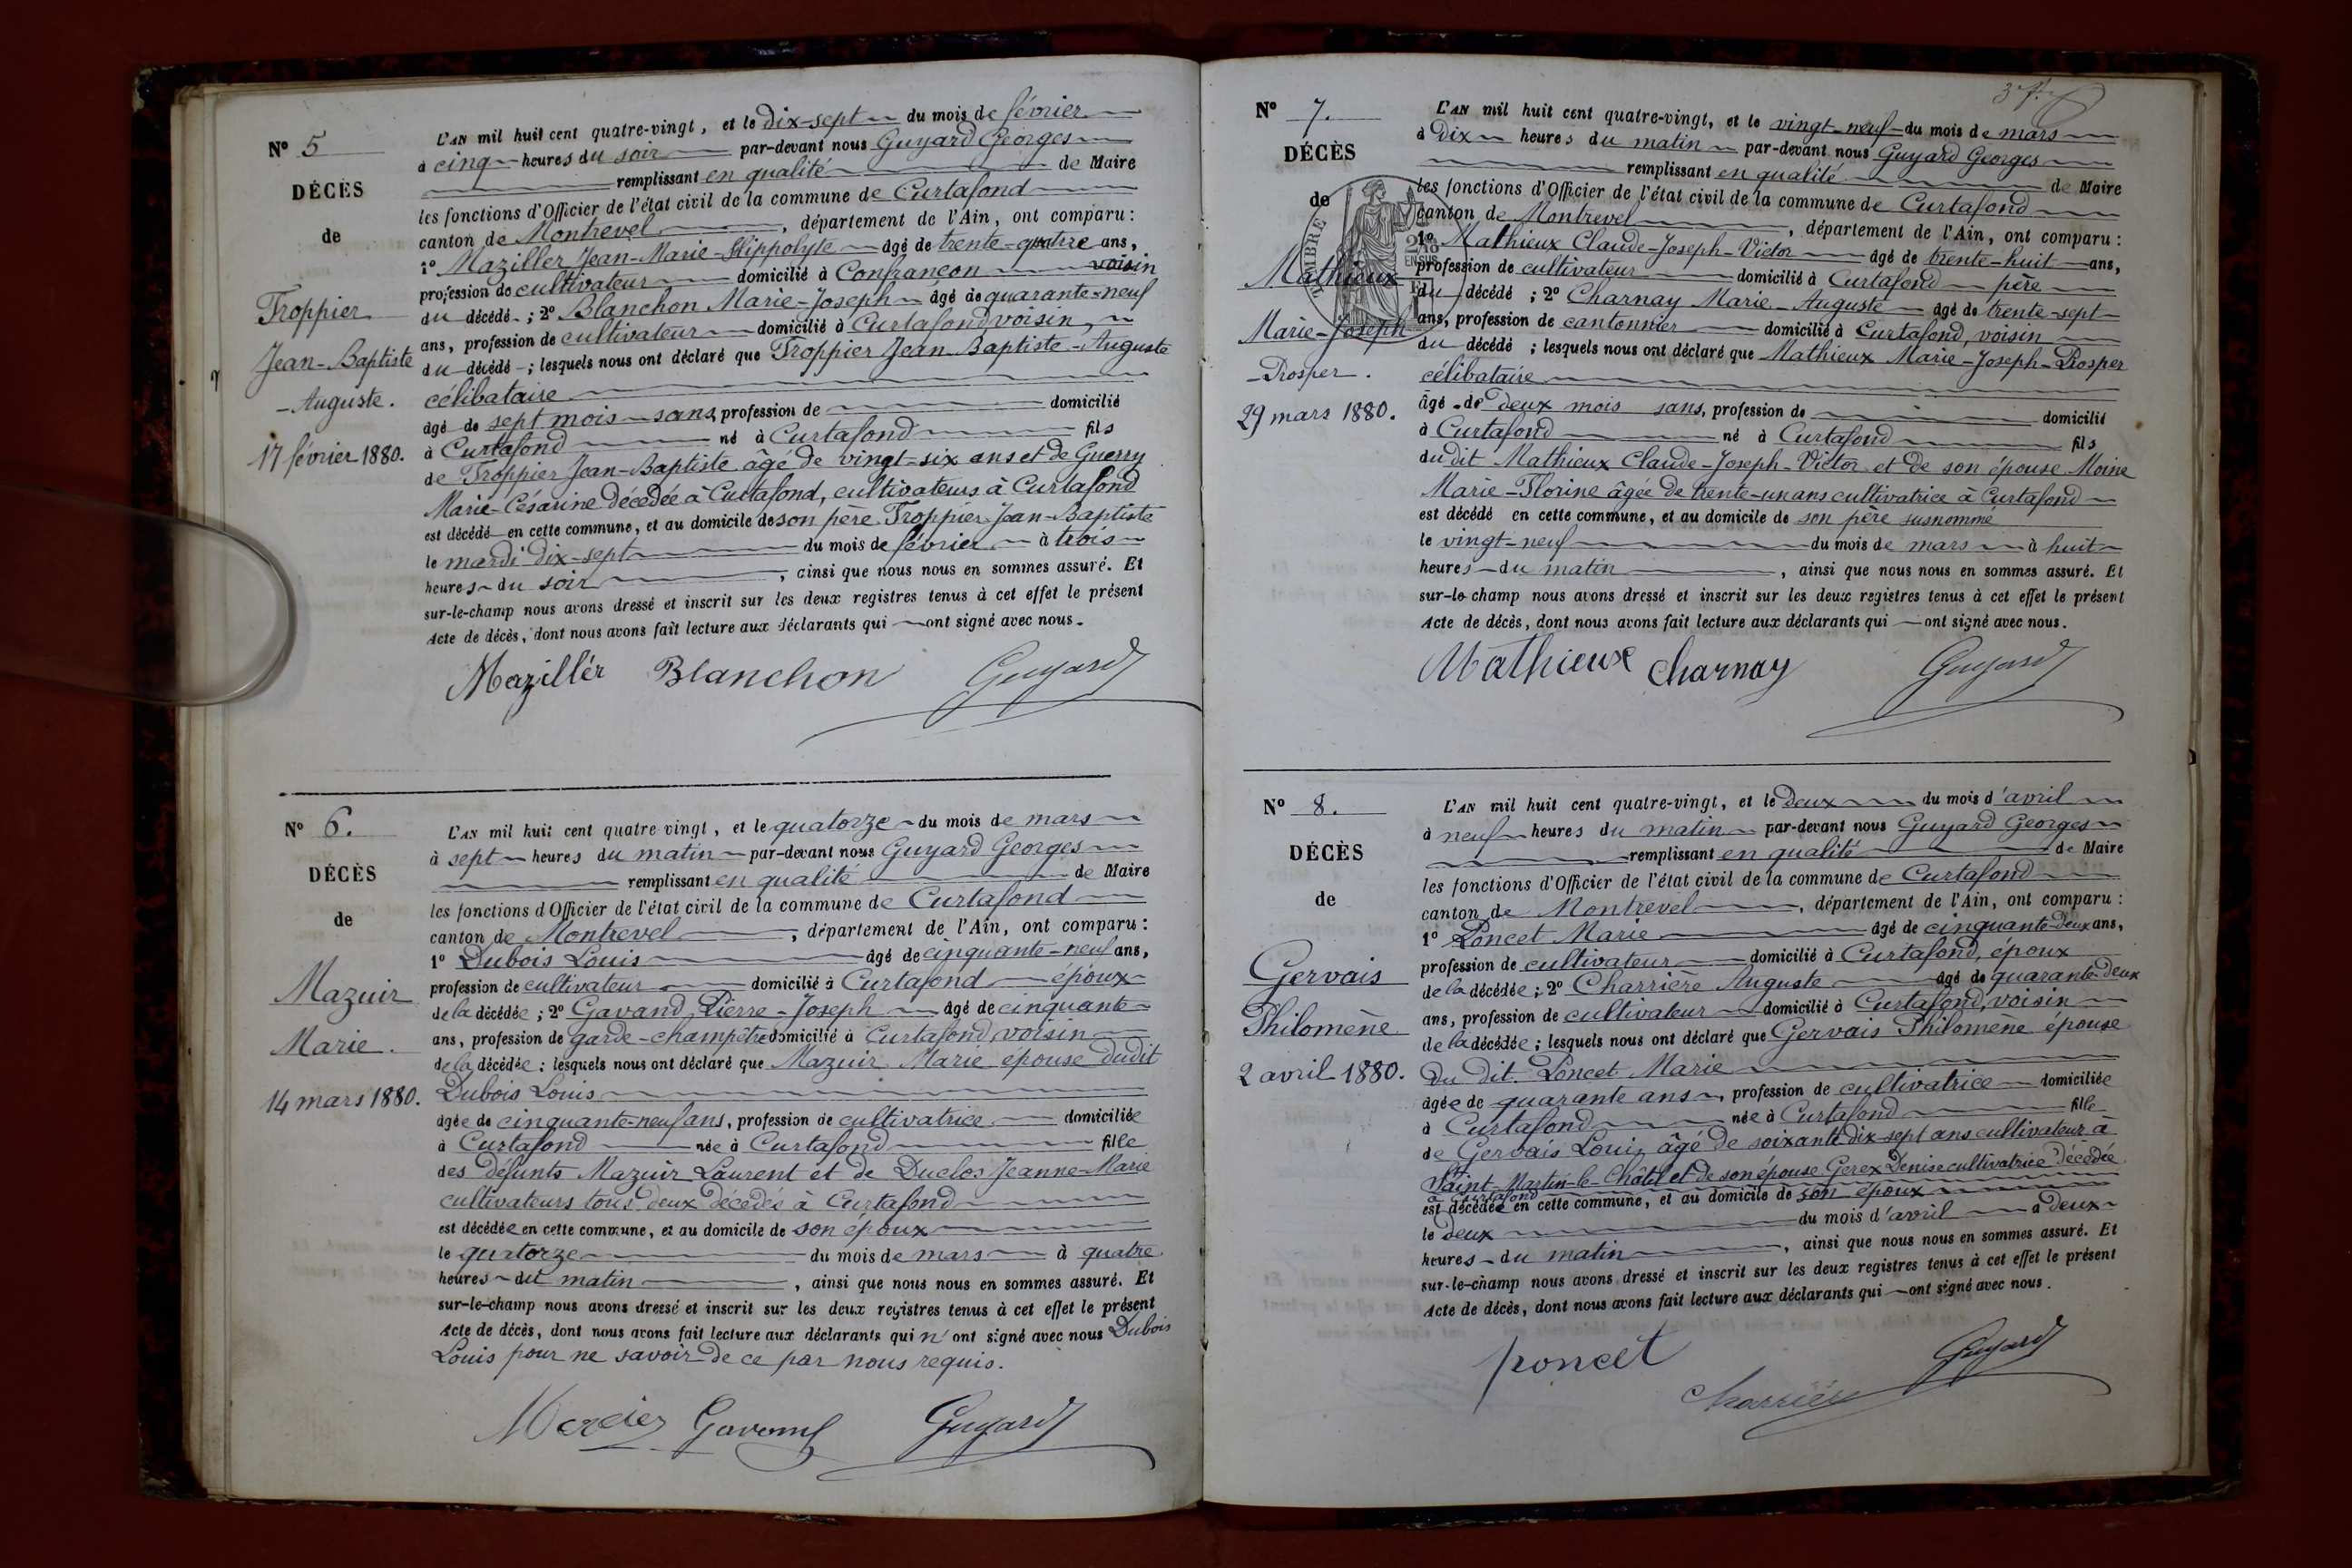 N° 5
DÉCÈS
de
Troppier
Jean-Baptiste
-Auguste.
17 février 1880.
L'AN mil huit cent quatre-vingt, et le dix-sept du mois de février
à cinq heures du soir par-devant nous Guyard Georges
remplissant en qualité de Maire
les fonctions d'Officier de l'état civil de la commune de Curtafond
canton de Montrevel, département de l'Ain, ont comparu :
1° Maziller Jean-Marie-Hippolyte âgé de trente-quatre ans,
profession de cultivateur domicilié à Confrançon voisin
du décédé ; 2° Blanchon Marie-Joseph âgé de quarante-neuf
ans, profession de cultivateur domicilié à Curtafond, voisin,
du décédé ; lesquels nous ont déclaré que Troppier Jean-Baptiste-Auguste
célibataire
âgé de sept mois sans profession de domicilié
à Curtafond né à Curtafond fils
de Troppier Jean-Baptiste âgé de vingt-six ans et de Guerry
Marie-Césarine décédée à Curtafond, cultivateurs à Curtafond
est décédé en cette commune, et au domicile de son père Troppier Jean-Baptiste
le mardi dix-sept du mois de février à trois
heures du soir, ainsi que nous nous en sommes assuré. Et
sur-le-champ nous avons dressé et inscrit sur les deux registres tenus à cet effet le présent
Acte de décès, dont nous avons fait lecture aux déclarants qui ont signé avec nous.
Mazillér Blanchon Guyard
N° 6.
DÉCÈS
de
Mazuir
Marie.
14 mars 1880.
L'AN mil huit cent quatre-vingt, et le quatorze du mois de mars
à sept heures du matin par-devant nous Guyard Georges
remplissant en qualité de Maire
les fonctions d'Officier de l'état civil de la commune de Curtafond
canton de Montrevel, département de l'Ain, ont comparu :
1° Dubois Louis âgé de cinquante-neuf ans,
profession de cultivateur domicilié à Curtafond époux
de la décédée ; 2° Gavand Pierre-Joseph âgé de cinquante
ans, profession de garde-champêtre domicilié à Curtafond, voisin
de la décédée ; lesquels nous ont déclaré que Mazuir Marie épouse dudit
Dubois Louis
âgée de cinquante-neuf ans, profession de cultivatrice domiciliée
à Curtafond née à Curtafond fille
des défunts Mazuir Laurent et de Duclos Jeanne-Marie
cultivateurs tous deux décédés à Curtafond
est décédée en cette commune, et au domicile de son époux
le quatorze du mois de mars à quatre
heures du matin, ainsi que nous nous en sommes assuré. Et
sur-le-champ nous avons dressé et inscrit sur les deux registres tenus à cet effet le présent
Acte de décès, dont nous avons fait lecture aux déclarants qui n'ont signé avec nous Dubois
Louis pour ne savoir de ce par nous requis.
Mercier Gavand Guyard
N° 7.
DÉCÈS
de
Mathieux
Marie-Joseph
-Prosper.
29 mars 1880.
L'AN mil huit cent quatre-vingt, et le vingt-neuf du mois de mars
à dix heures du matin par-devant nous Guyard Georges
remplissant en qualité de Maire
les fonctions d'Officier de l'état civil de la commune de Curtafond
canton de Montrevel, département de l'Ain, ont comparu :
1° Mathieux Claude-Joseph-Victor âgé de trente-huit ans,
profession de cultivateur domicilié à Curtafond père
du décédé ; 2° Charnay Marie-Auguste âgé de trente-sept
ans, profession de cantonnier domicilié à Curtafond, voisin
du décédé ; lesquels nous ont déclaré que Mathieux Marie-Joseph-Prosper
célibataire
âgé de deux mois sans, profession de domicilié
à Curtafond né à Curtafond fils
du dit Mathieux Claude-Joseph-Victor et de son épouse Moine
Marie-Florine âgée de trente-un ans cultivatrice à Curtafond
est décédé en cette commune, et au domicile de son père susnommé
le vingt-neuf du mois de mars à huit
heures du matin, ainsi que nous nous en sommes assuré. Et
sur-le-champ nous avons dressé et inscrit sur les deux registres tenus à cet effet le présent
Acte de décès, dont nous avons fait lecture aux déclarants qui ont signé avec nous.
Mathieux Charnay Guyard
N° 8.
DÉCÈS
de
Gervais
Philomène
2 avril 1880.
L'AN mil huit cent quatre-vingt, et le deux du mois d'avril
à neuf heures du matin par-devant nous Guyard Georges
remplissant en qualité de Maire
les fonctions d'Officier de l'état civil de la commune de Curtafond
canton de Montrevel, département de l'Ain, ont comparu :
1° Poncet Marie âgé de cinquante-deux ans,
profession de cultivateur domicilié à Curtafond, époux
de la décédée ; 2° Charrière Auguste âgé de quarante-deux
ans, profession de cultivateur domicilié à Curtafond, voisin
de la décédée ; lesquels nous ont déclaré que Gervais Philomène épouse
du dit Poncet Marie
âgée de quarante ans, profession de cultivatrice domiciliée
à Curtafond née à Curtafond fille
de Gervais Louis âgé de soixante dix-sept ans cultivateur à
Saint-Martin-le-Châtel et de son épouse Gerex Denise cultivatrice décédée
à Curtafond
est décédée en cette commune, et au domicile de son époux
le deux du mois d'avril à deux
heures du matin, ainsi que nous nous en sommes assuré. Et
sur-le-champ nous avons dressé et inscrit sur les deux registres tenus à cet effet le présent
Acte de décès, dont nous avons fait lecture aux déclarants qui ont signé avec nous.
poncet Charrière Guyard